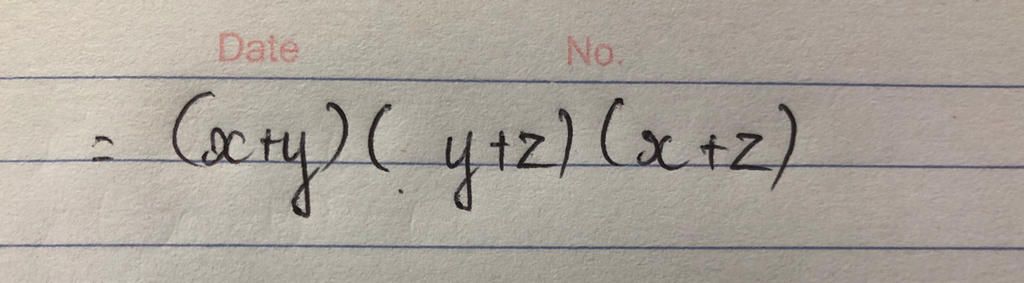 Date No.
= (x+y) ( y+z) (x+z)